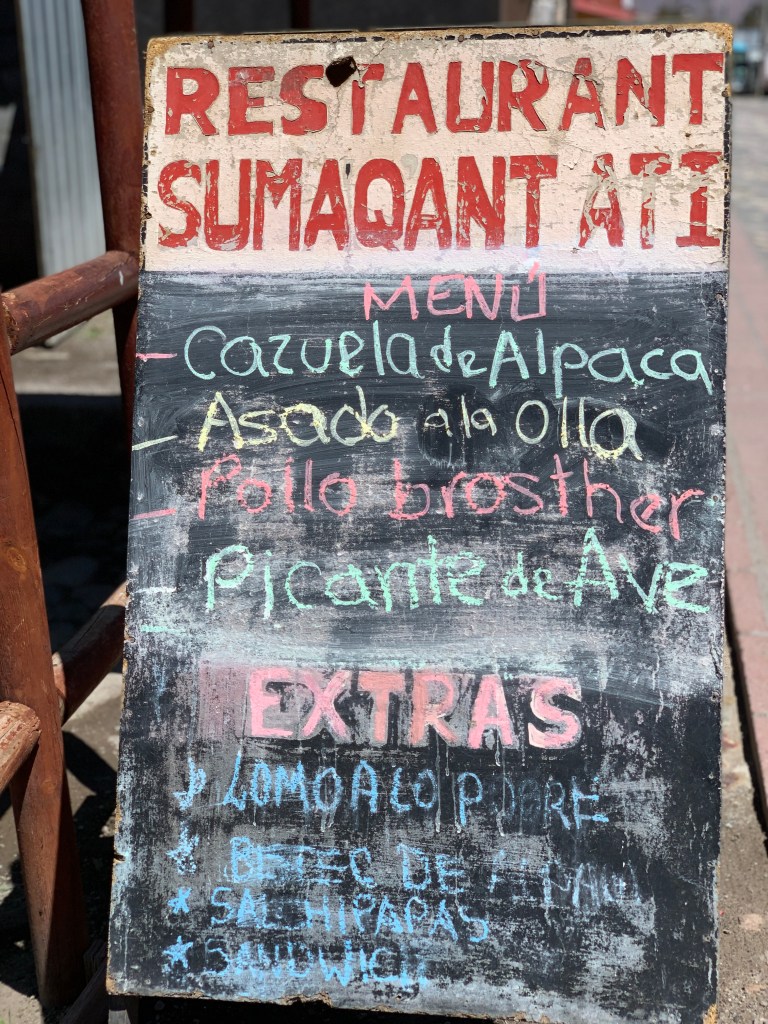 RESTAURANT
SUMAQANT ATI
MENÚ
- Cazuela de Alpaca
- Asado a la Olla
- Pollo brosther
- Picante de Ave
EXTRAS
* LOMO A LO POBRE
* BETEC DE ALPACA
* SALCHIPAPAS
* SANDWICH